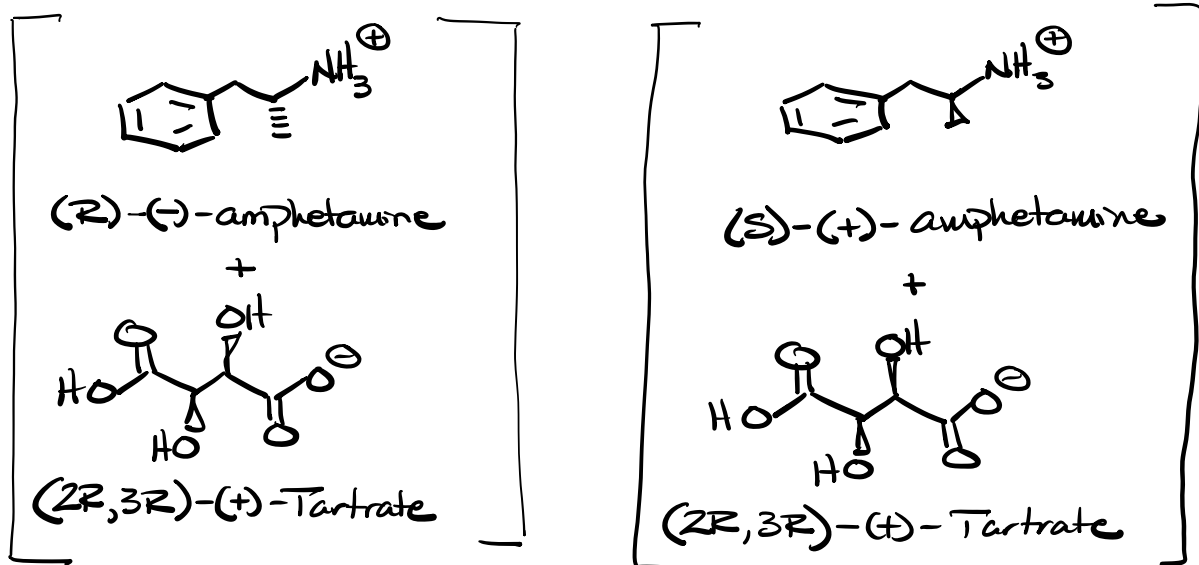 NH3⊕
(R)-(-)-amphetamine
+
O OH
HO O⊖
HO O
(2R,3R)-(+)-Tartrate
NH3⊕
(S)-(+)-amphetamine
+
O OH
HO O⊖
HO O
(2R,3R)-(+)-Tartrate